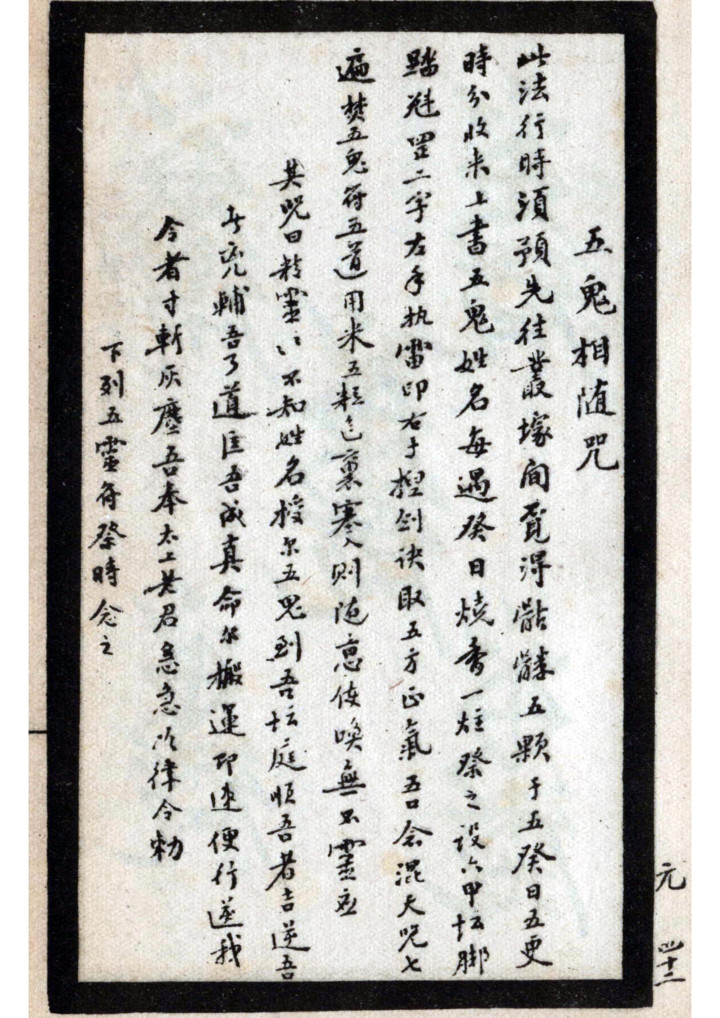 五鬼相随咒
此法行時須預先往叢塚間覓得骷髏五顆于五癸日五更
時分收来上書五鬼姓名每遇癸日燒香一炷祭之設六甲坛脚
踏魁罡二字左手执雷印右手捏剑诀取五方正氣五口念混天咒七
遍焚五鬼符五道用米五粒包裏塞入则随意使喚無不靈应
其咒曰 靈〻不知姓名授尔五鬼到吾坛庭順吾者吉逆吾
者凶輔吾了道匡吾成真命尔搬運即速便行逆我
令者寸斬灰塵吾奉太上老君急急如律令勅
下列五靈符祭時念之
元 四十二